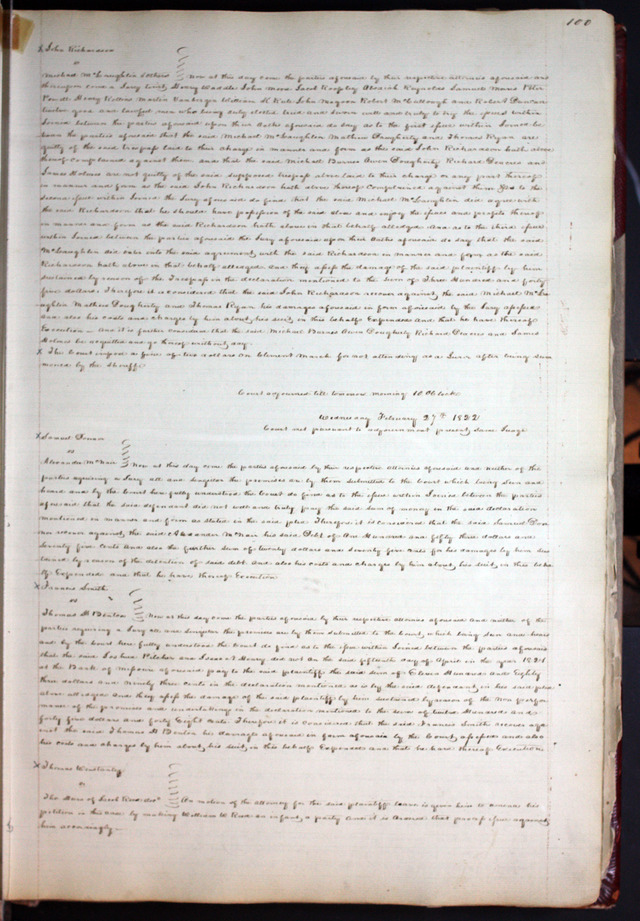 100
X John Richardson
vs
Michael McLaughlin & others Now at this day come the parties aforesaid by their respective attornies aforesaid and
thereupon come a Jury to wit, Henry Waddle John Moore Jacob Abijah Reynolds Samuel Peter
Powell Henry Martin William K Rule John Robert McCullough and Robert Duncan
twelve good and lawful men who being duly elected tried and sworn well and truly to try the issues within
Joined between the parties aforesaid upon their Oaths aforesaid do say as to the first issue within Joined be
tween the parties aforesaid that the said Michael McLaughlin Mathew Dougherty and Thomas Ryan are
guilty of the said trespass laid to their charge in manner and form as the said John Richardson hath above
thereof complained against them and that the said Michael Burnes Owen Dougherty Richard and
James Holmes are not guilty of the said supposed trespass above laid to their charge or any part thereof
in manner and form as the said John Richardson hath above thereof Complained against them And to the
second issue within Joined the Jury aforesaid do find that the said Michael McLaughlin did agree with
the said Richardson that he should have possession of the said and enjoy the issues and profits thereof
in manner and form as the said Richardson hath above in that behalf alledged And as to the third issue
within Joined between the parties aforesaid the Jury aforesaid upon their Oaths aforesaid do say that the said
McLaughlin did enter into the said agreement, with the said Richardson in manner and form as the said
Richardson hath above in that behalf alledged and they assess the damage of the said plaintiff by him
sustained by reason of the Trespass in the declaration mentioned to the sum of Three Hundred and forty
five dollars. Therefore it is considered that the said John Richardson recover against the said Michael McLa
ughlin Mathew Dougherty and Thomas Ryan his damages aforesaid in form aforesaid by the Jury assessed
and also his costs and charges by him about his suit in this behalf Expended and that he have thereof
Execution — And it is further considered that the said Michael Burnes Owen Dougherty Richard and James
Holmes be acquitted and go thereof without day.
X The Court imposed a fine of two dollars on Clement March for not attending as a Juror after being sum
moned by the Sheriff
Court adjourned till tomorrow morning 10 OClock
Wednesday February 27th 1822
Court met pursuant to adjournment present, same Judge
X Samuel
vs
Alexander McNair Now at this day come the parties aforesaid by their respective attornies aforesaid and neither of the
parties requiring a Jury all and singular the premises are by them submitted to the Court which being seen and
heard and by the Court here fully understood the Court do find as to the issue within Joined between the parties
aforesaid that the said defendant did not well and truly pay the said sum of money in the said declaration
mentioned in manner and form as stated in the said plea Therefore it is considered that the said Samuel
recover against the said Alexander McNair his said Debt of One Hundred and fifty three dollars and
Seventy five Cents And also the further sum of twenty dollars and seventy five cents for his damages by him sus
tained by reason of the detention of said debt. And also his costs and charges by him about his suit in this beha
lf Expended and that he have thereof Execution
X Francis Smith
vs
Thomas H Benton Now at this day come the parties aforesaid by their respective attornies aforesaid and neither of the
parties requiring a Jury all and singular the premises are by them submitted to the Court, which being seen and heard
and by the Court here fully understood the Court do find as to the issue within Joined between the parties aforesaid
that the said Joshua Pilcher and Isaac Henry did not on the said fifteenth day of April in the year 1821
at the Bank of Missouri aforesaid pay to the said plaintiff the said sum of Eleven Hundred and Eighty
three dollars and Ninety three cents in the declaration mentioned as is by the said defendant in his said plea
above alledged And they assess the damage of the said plaintiff by him sustained by reason of the Non perfor
mance of the promises and undertakings in the declaration mentioned to the sum of twelve Hundred and
forty five dollars and forty Eight Cents. Therefore it is Considered that the said Francis Smith recover aga
inst the said Thomas H Benton his damages aforesaid in form aforesaid by the Court, assessed and also
his costs and charges by him about, his suit, in this behalf Expended and that he have thereof Execution
X Thomas
vs
The Heirs of Jacob decd On motion of the attorney for the said plaintiff leave is given him to amend his
petition in this case by making William W an infant, a party And it is Ordered that process issue against
him accordingly —